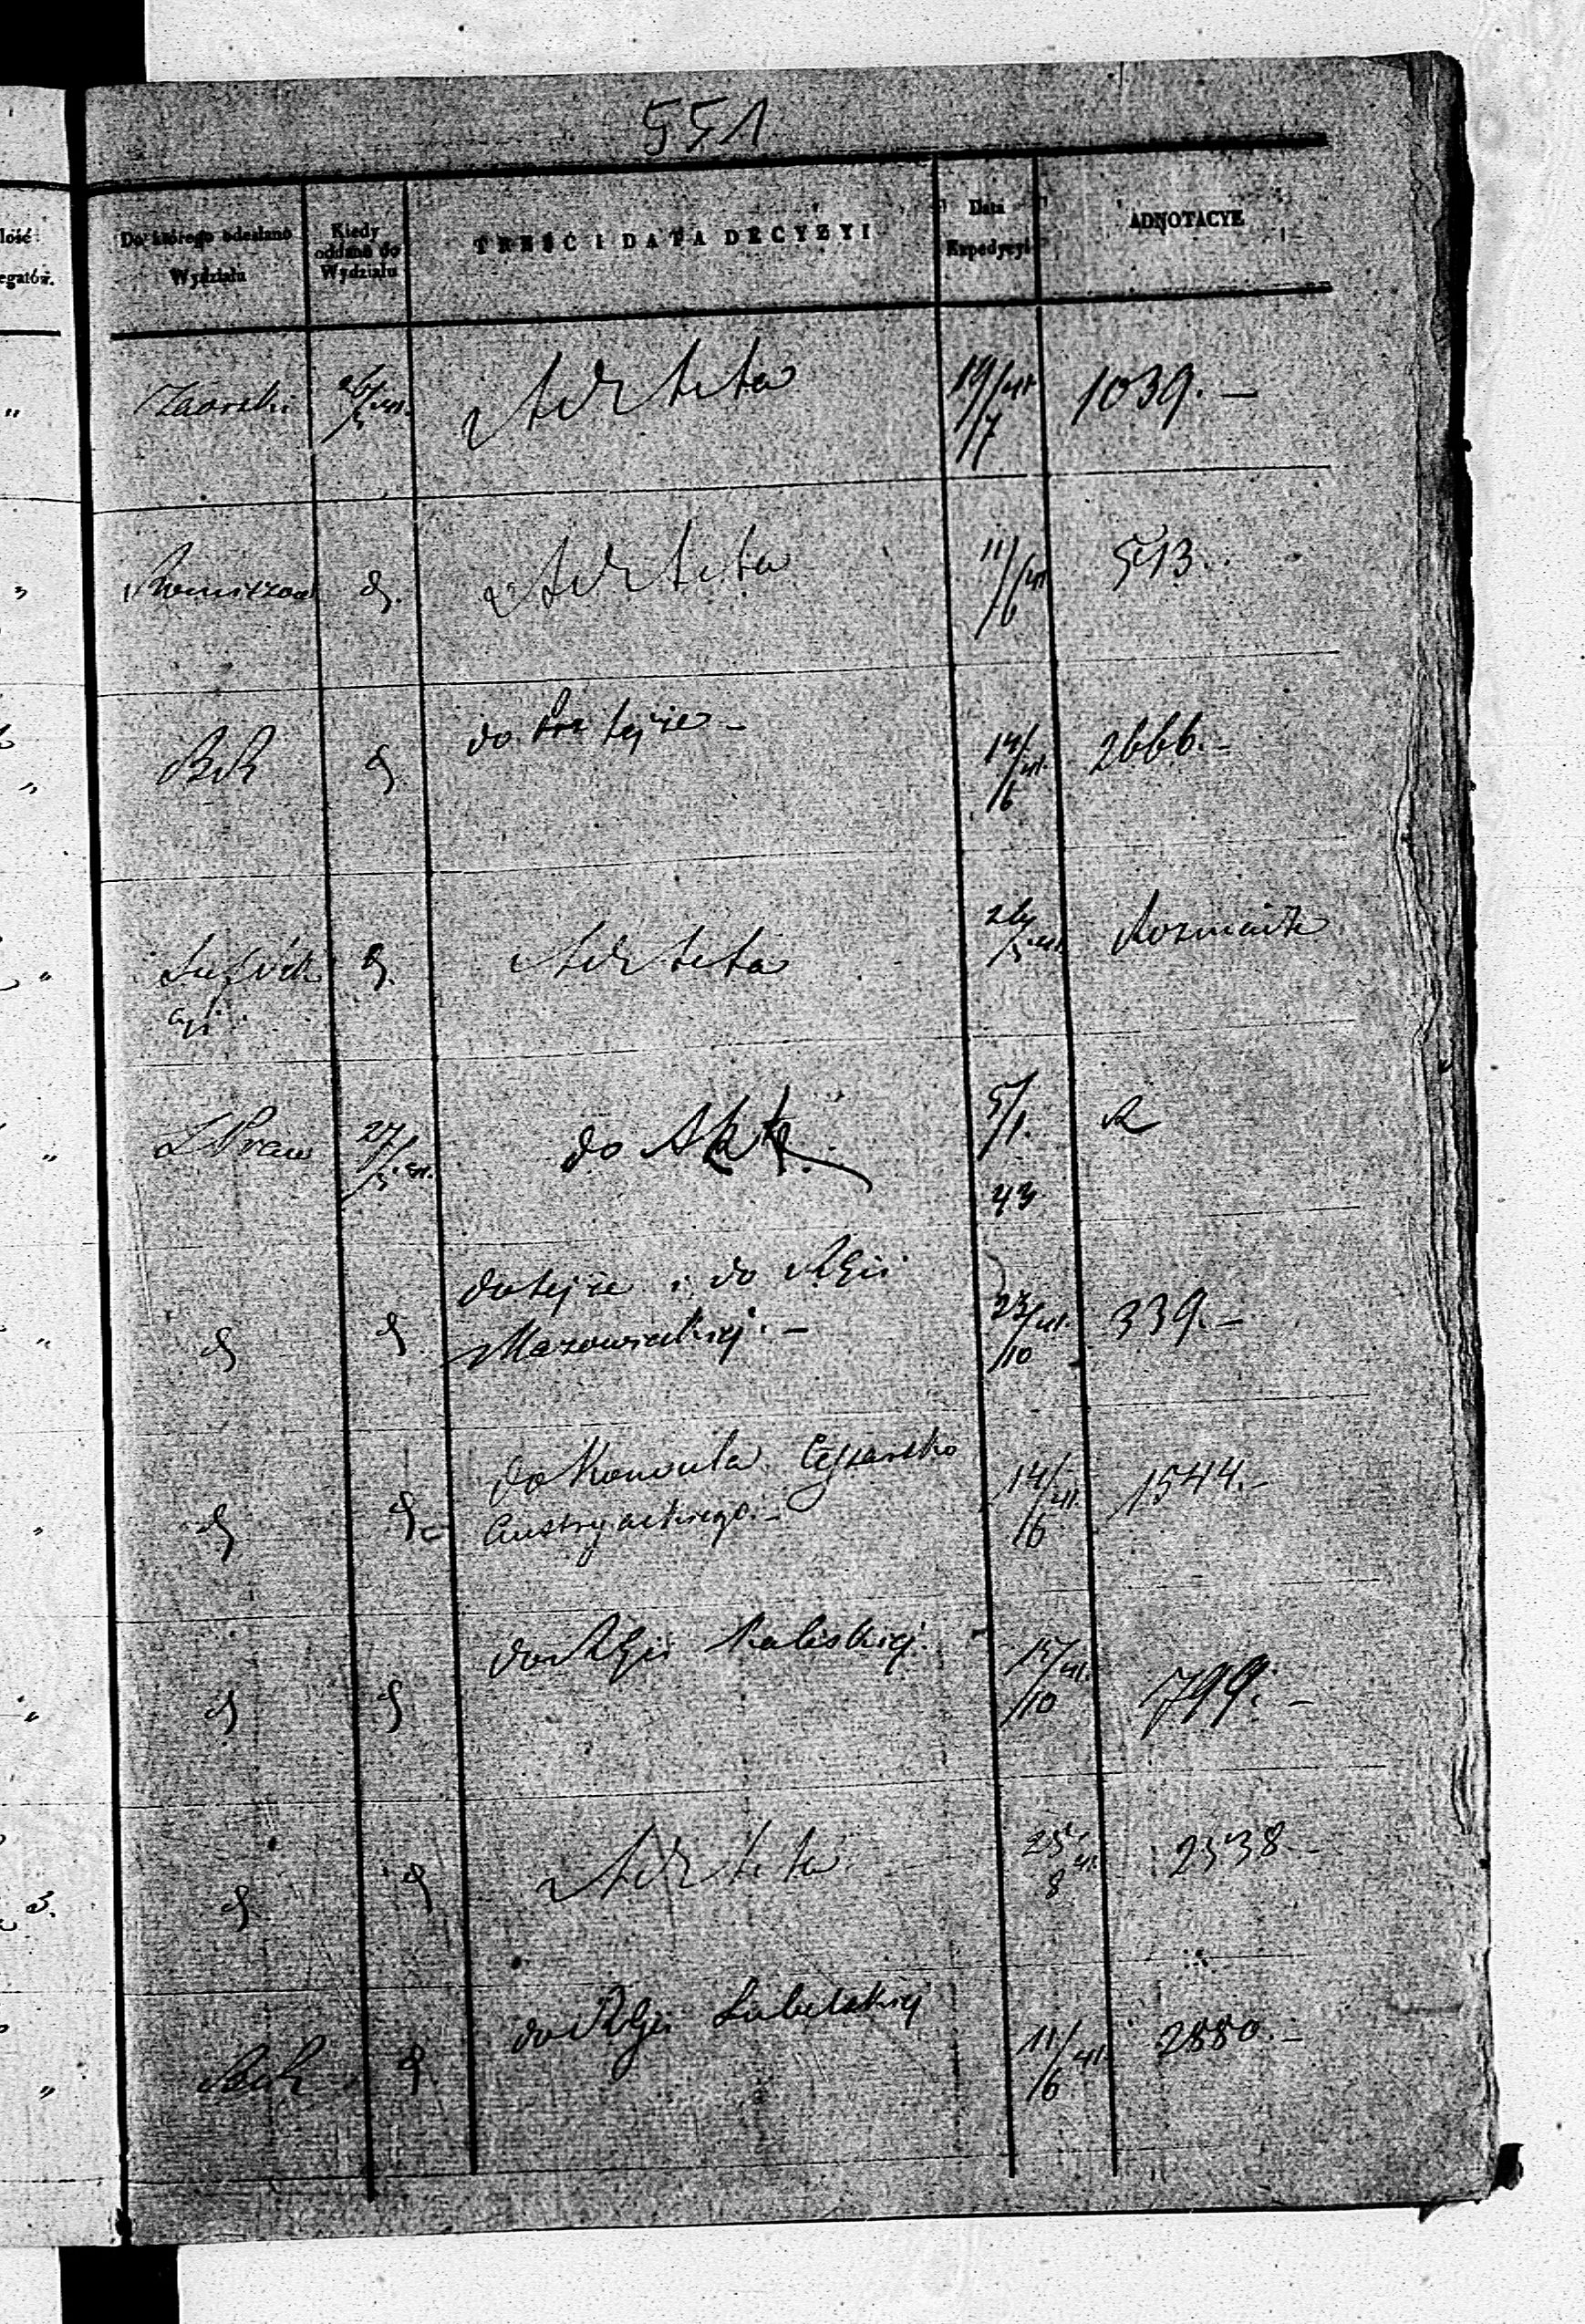 551
lość
egatów.
Do którego odesłano
Wydziału
Kiedy
oddano do
Wydziału
TREŚĆ I DATA DECYZYI
Data
Expedycyi
ADNOTACYE
Zaorski 26/5 41. Ad Acta 19/7 41 1039. —
d. Ad Acta 11/6 41 513.
d do tejże — 14/6 41. 2666. —
d. Ad Acta 26/5 41. Rozmaite
Praw 27/5 41. do Akt 5/1. 43 R
d d do tejże i do RGu
Mazowieckiej. — 23/10 41. 339. —
d d do Konsula Cesarsko
Austryackiego. — 14/6 41. 1544. —
d d do RGu Kaliskiej. 15/10 41. 799. —
d d Ad Acta 25/8 41. 2338 —
d. do RGu Lubelskiej 11/6 41 2880. —